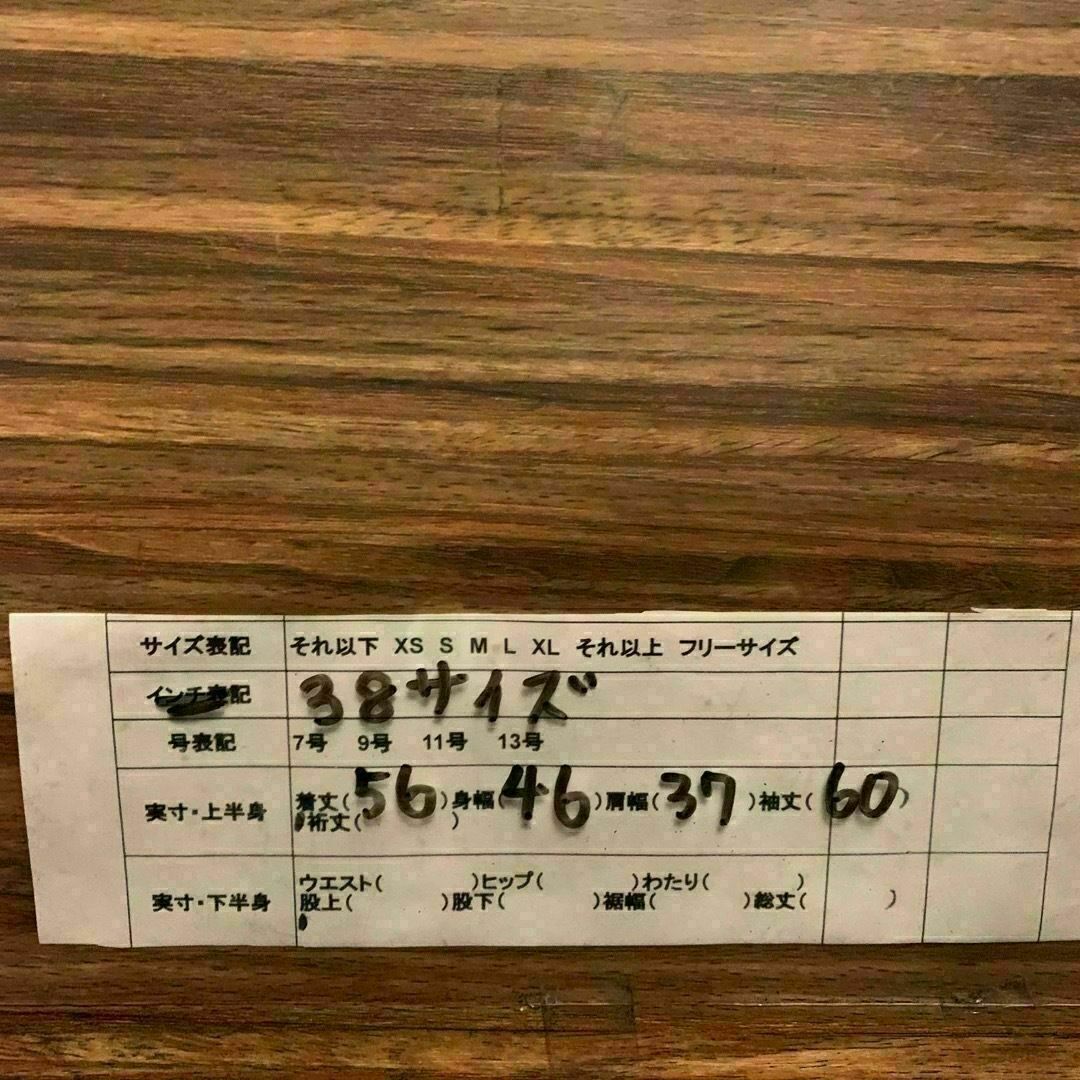 サイズ表記 それ以下 XS S M L XL それ以上 フリーサイズ
インチ表記 38サイズ
号表記 7号 9号 11号 13号
実寸・上半身 着丈(56)身幅(46)肩幅(37)袖丈(60)
裄丈( )
実寸・下半身 ウエスト( )ヒップ( )わたり( )
股上( )股下( )裾幅( )総丈( )